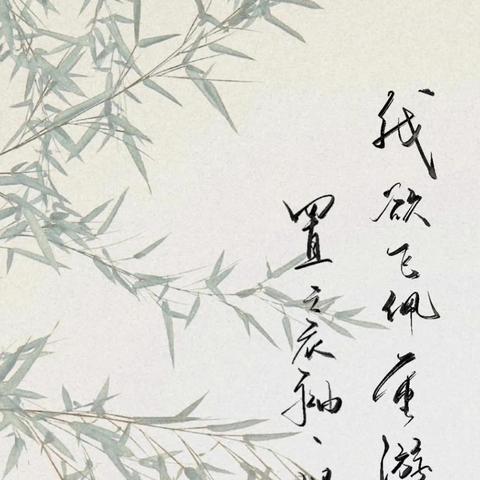 我欲飞佩重游
置之衣袖、